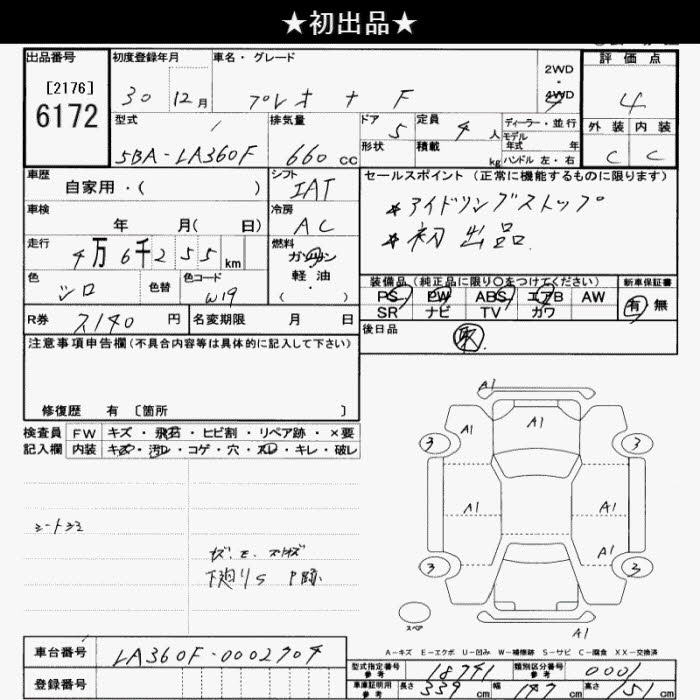 ★初出品★
出品番号
[2176]
6172
初度登録年月
30 12月
車名・グレード
プレオ+ F
2WD
4WD
評価点
4
外装 内装
C C
型式
5BA-LA360F
排気量
660 cc
ドア 5
形状
定員 4 人
積載 kg
ディーラー・並行
モデル
年式 年
ハンドル 左・右
車歴
自家用・( )
シフト
IAT
セールスポイント(正常に機能するものに限ります)
☆アイドリングストップ
☆初出品
車検
年 月( 日)
冷房
AC
走行
4万6千255km
燃料
ガソリン
軽・油
( )
色
シロ
色替
色コード
W19
装備品(純正品に限り○をつけてください)
PS PW ABS エアB AW
SR ナビ TV カワ
新車保証書
有 無
R券 7140 円
名変期限 月 日
後日品
取
注意事項申告欄(不具合内容等は具体的に記入して下さい)
修復歴 有 〔箇所 〕
検査員
記入欄
FW キズ・飛石・ヒビ割・リペア跡・×要
内装 キズ・汚れ・コゲ・穴・スレ・キレ・破レ
シートシミ
下廻りS P跡
A1
A1
A1
3
3
A1
A1
A1
A1
3
3
スペア
A1
A-キズ E-エクボ U-凹み W-補修跡 S-サビ C-腐食 XX-交換済
車台番号
LA360F-0002704
登録番号
型式指定番号
参考
18741
類別区分番号
参考
0001
車庫証明用
参考
長さ 339 cm
幅 147 cm
高さ 151 cm